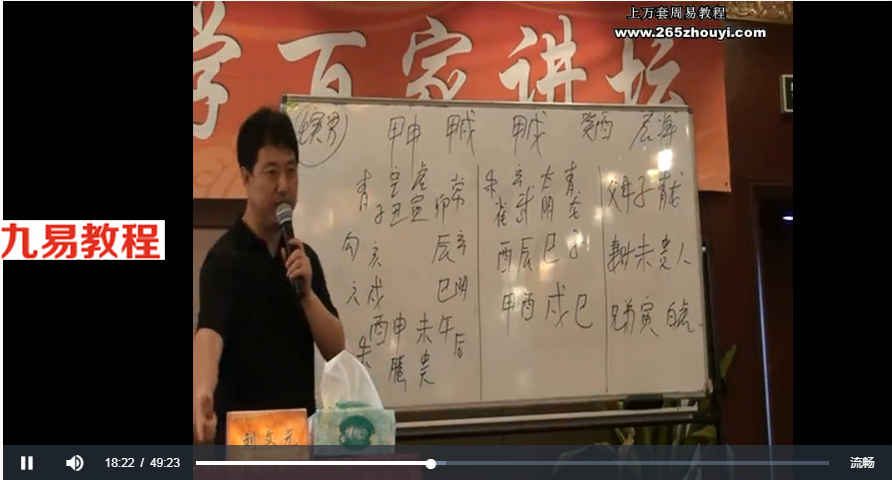 上万套周易教程
www.265zhouyi.com
学百家讲坛
甲申 甲戌 甲戌 癸酉
青 空 虎 常
子 丑 寅 卯
朱雀 玄武 太阴 青龙
父母 子 青龙
勾 亥
辰 玄
酉 辰 巳 子
妻财 未 贵人
九易教程
六 戌
巳 阴
甲 酉 戌 巳
兄弟 寅 白虎
朱 酉 申 未 午 后
贵
18:22 / 49:23
流畅